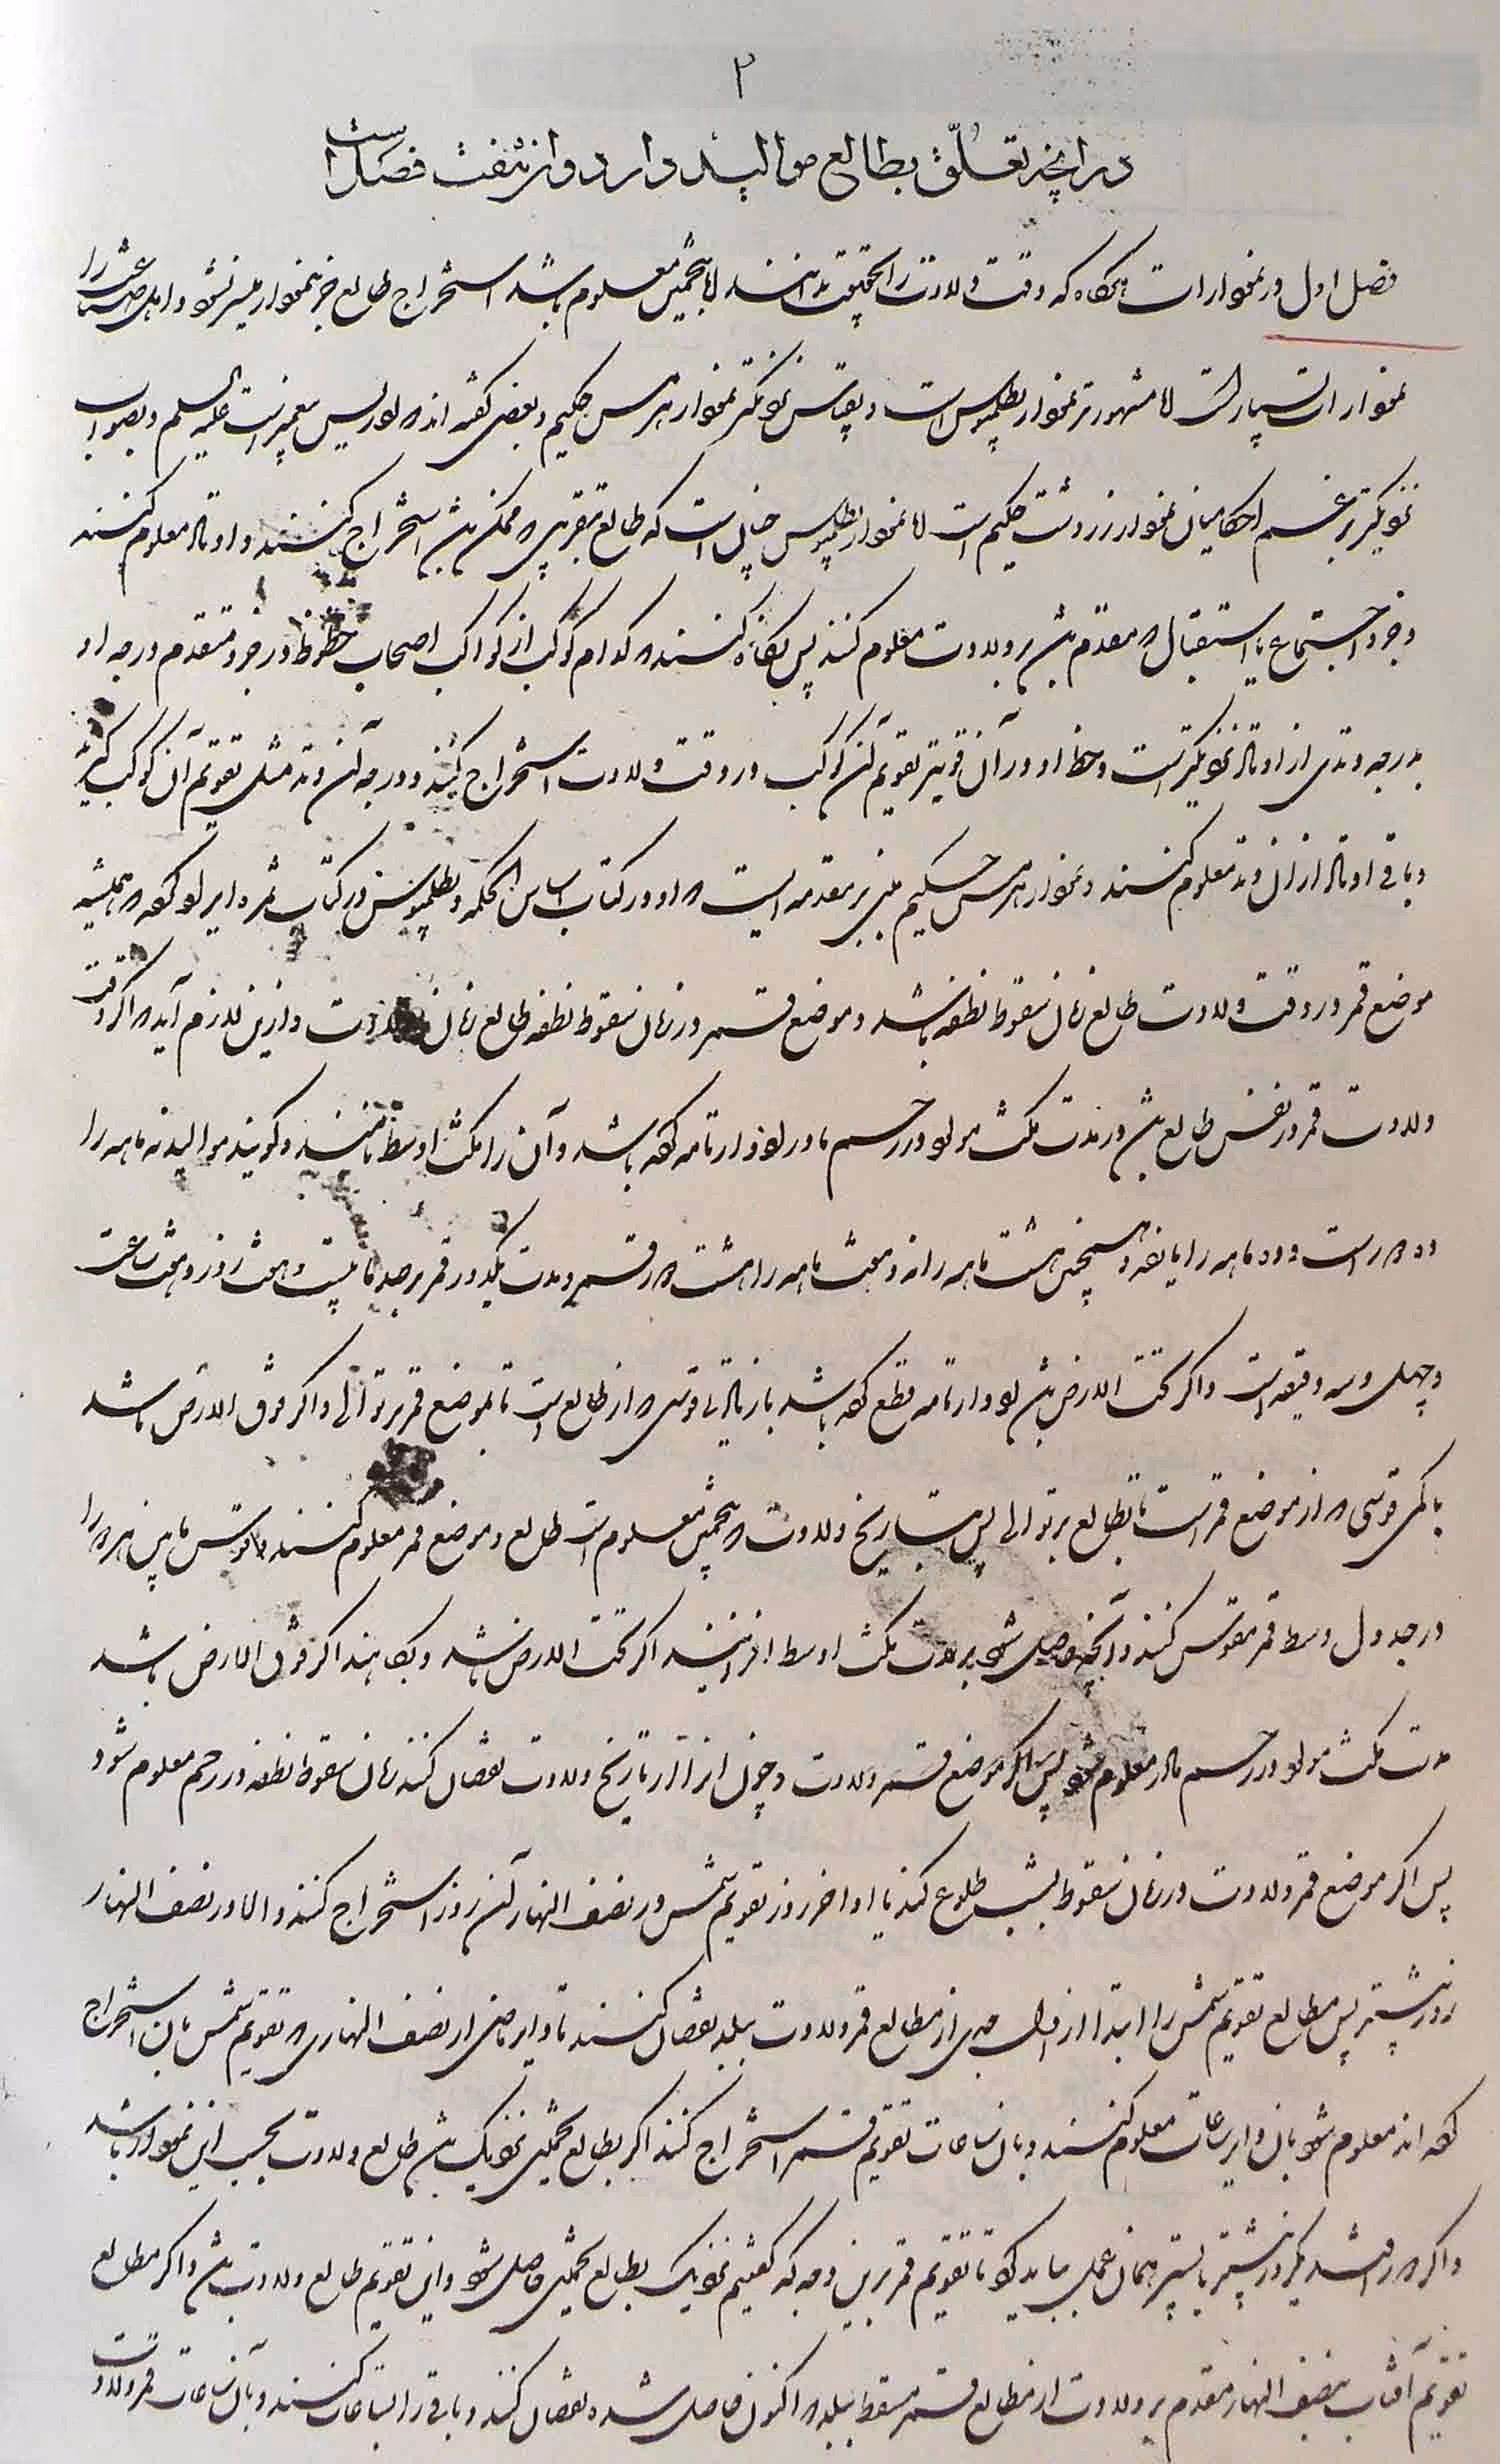 ۳
در آنچه تعلق بطالع موالید دارد و آن هفت فصل است
فصل اول در نمودارات هرگاه که وقت ولادت را بحقیقت ندانند لا بتخمین معلوم باشد استخراج طالع جز بنمودار میسر نشود و اهل صناعت را
نمودارات بسیارست لا مشهورتر نمودار بطلمیوس است و بقیاس نزدیکتر نمودار هرمس حکیم و بعضی گفته اند که ادریس پیغمبرست علیه السلم و بصواب
نزدیکتر بزعم احکامیان نمودار زردشت حکیم است لا نمودار بطلمیوس چنان است که طالع تقریبی که ممکن بود استخراج کنند و اوتاد معلوم کنند
و جزو اجتماع یا استقبال که مقدم بود بر ولادت معلوم کنند پس نگاه کنند که کدام کوکب از کواکب اصحاب حظوظ در جزو متقدم درجه او
بدرجه وتدی از اوتاد نزدیکترست و حظ او در آن قویتر تقویم آن کوکب در وقت ولادت استخراج کنند و درجه آن وتد مثل تقویم آن کوکب گیرند
و باقی اوتاد از آن وتد معلوم کنند و نمودار هرمس حکیم مبنی بر مقدمه ایست که او در کتاب اساس الحکمه و بطلمیوس در کتاب ثمره ایراد کرده که همیشه
موضع قمر در وقت ولادت طالع زمان سقوط نطفه باشد و موضع قمر در زمان سقوط نطفه طالع زمان ولادت و ازین لازم آید که اگر وقت
ولادت قمر در نفس طالع بود در مدت مکث مولود در رحم مادر ادوار تامه کرده باشد و آن را مکث اوسط خوانند و گویند موالید نه ماهه را
ده دورست و ده ماهه را یازده و همچنین هشت ماهه را نه و هفت ماهه را هشت دور قسم و مدت یکدور قمر بر صد تا بیست و هفت روز و هفت ساعت
و چهل و سه دقیقه است و اگر تحت الارض بود ادوار تامه قطع کرده باشد با زیادتی قوسی که از طالع است تا بموضع قمر بر توالی و اگر فوق الارض باشد
با کمی قوسی که از موضع قمرست تا بطالع بر توالی پس بتاریخ ولادت که بتخمین معلوم است طالع و موضع قمر معلوم کنند و قوس ما بین هر دو را
در جدول وسط قمر مقوس کنند و آنچه حاصل شود بر مدت مکث اوسط افزایند اگر تحت الارض باشد و بکاهند اگر فوق الارض باشد
مدت مکث مولود در رحم مادر معلوم شود پس اگر موضع قمر ولادت و چون آنرا از تاریخ ولادت نقصان کنند زمان سقوط نطفه در رحم معلوم شود
پس اگر موضع قمر ولادت در زمان سقوط بشب طلوع کند یا اواخر روز تقویم شمس در نصف النهار آن روز استخراج کنند و الا در نصف النهار
روز پیشتر پس مطالع تقویم شمس را ابتدا از اول جدی از مطالع قمر ولادت ببلد نقصان کنند تا دایر ماضی از نصف النهاری که تقویم شمس بآن استخراج
کرده اند معلوم شود بآن دایر ساعات معلوم کنند و بآن ساعات تقویم قمر استخراج کنند اگر بطالع تخمینی نزدیک بود طالع ولادت بحسب این نمودار باشد
و اگر دور افتد بیکروز پیشتر یا پستر همان عمل بباید کرد تا تقویم قمر برین وجه که گفتیم نزدیک بطالع تخمینی حاصل شود و این تقویم طالع ولادت بود و اگر مطالع
تقویم آفتاب بنصف النهار مقدم بر ولادت از مطالع قمر مسقط ببلد که اکنون حاصل شده نقصان کنند و باقی را بساعات کنند و بآن ساعات قمر ولادت